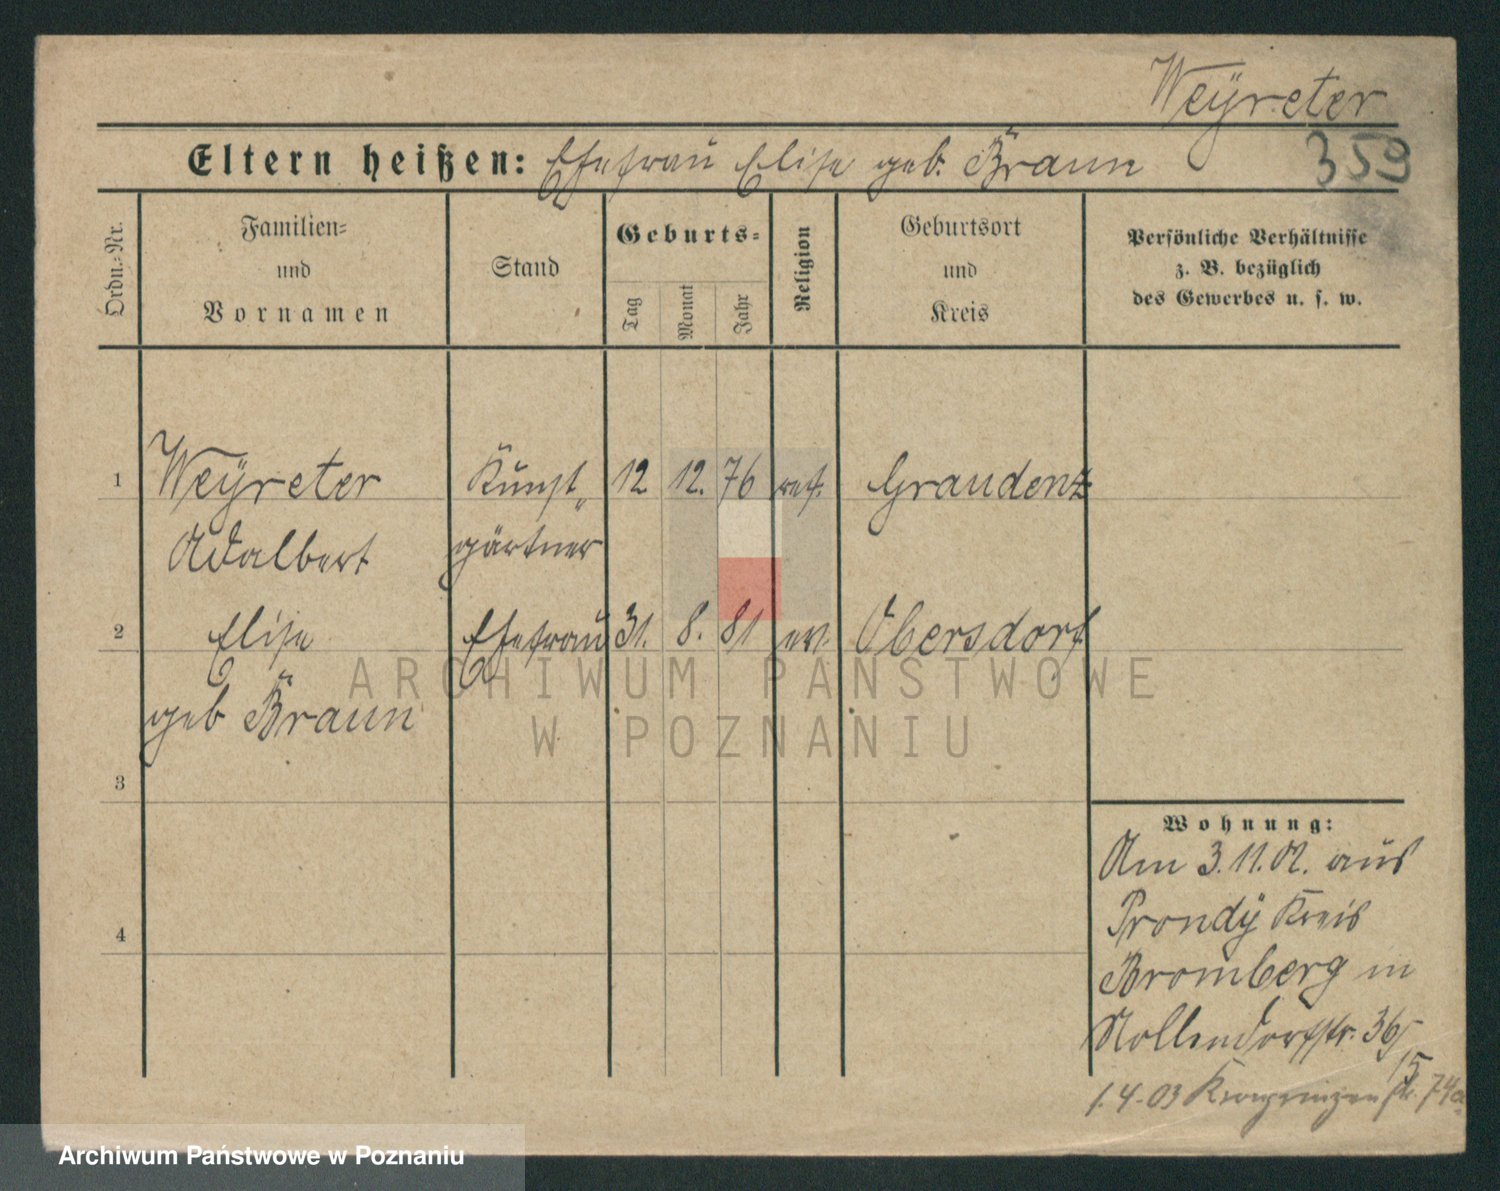 Weÿreter
Eltern heißen: Ehefrau Elise geb. Braun 359
Ordn.-Nr.
Familien-
und
Vornamen
Stand
Geburts-
Tag
Monat
Jahr
Religion
Geburtsort
und
Kreis
Persönliche Verhältnisse
z. B. bezüglich
des Gewerbes u. s. w.
1 Weÿreter Kunst„ 12 12. 76 ref. Graudenz
Adalbert gärtner
2 Elise Ehefrau 31. 8. 81 ev. Obersdorf
geb Braun
3
4
Wohnung:
Am 3.11.02. aus
Prondÿ Kreis
Bromberg in
Nollendorfstr. 36/
15
1.4.03 Kronprinzen str. 74a
ARCHIWUM PAŃSTWOWE
W POZNANIU
Archiwum Państwowe w Poznaniu